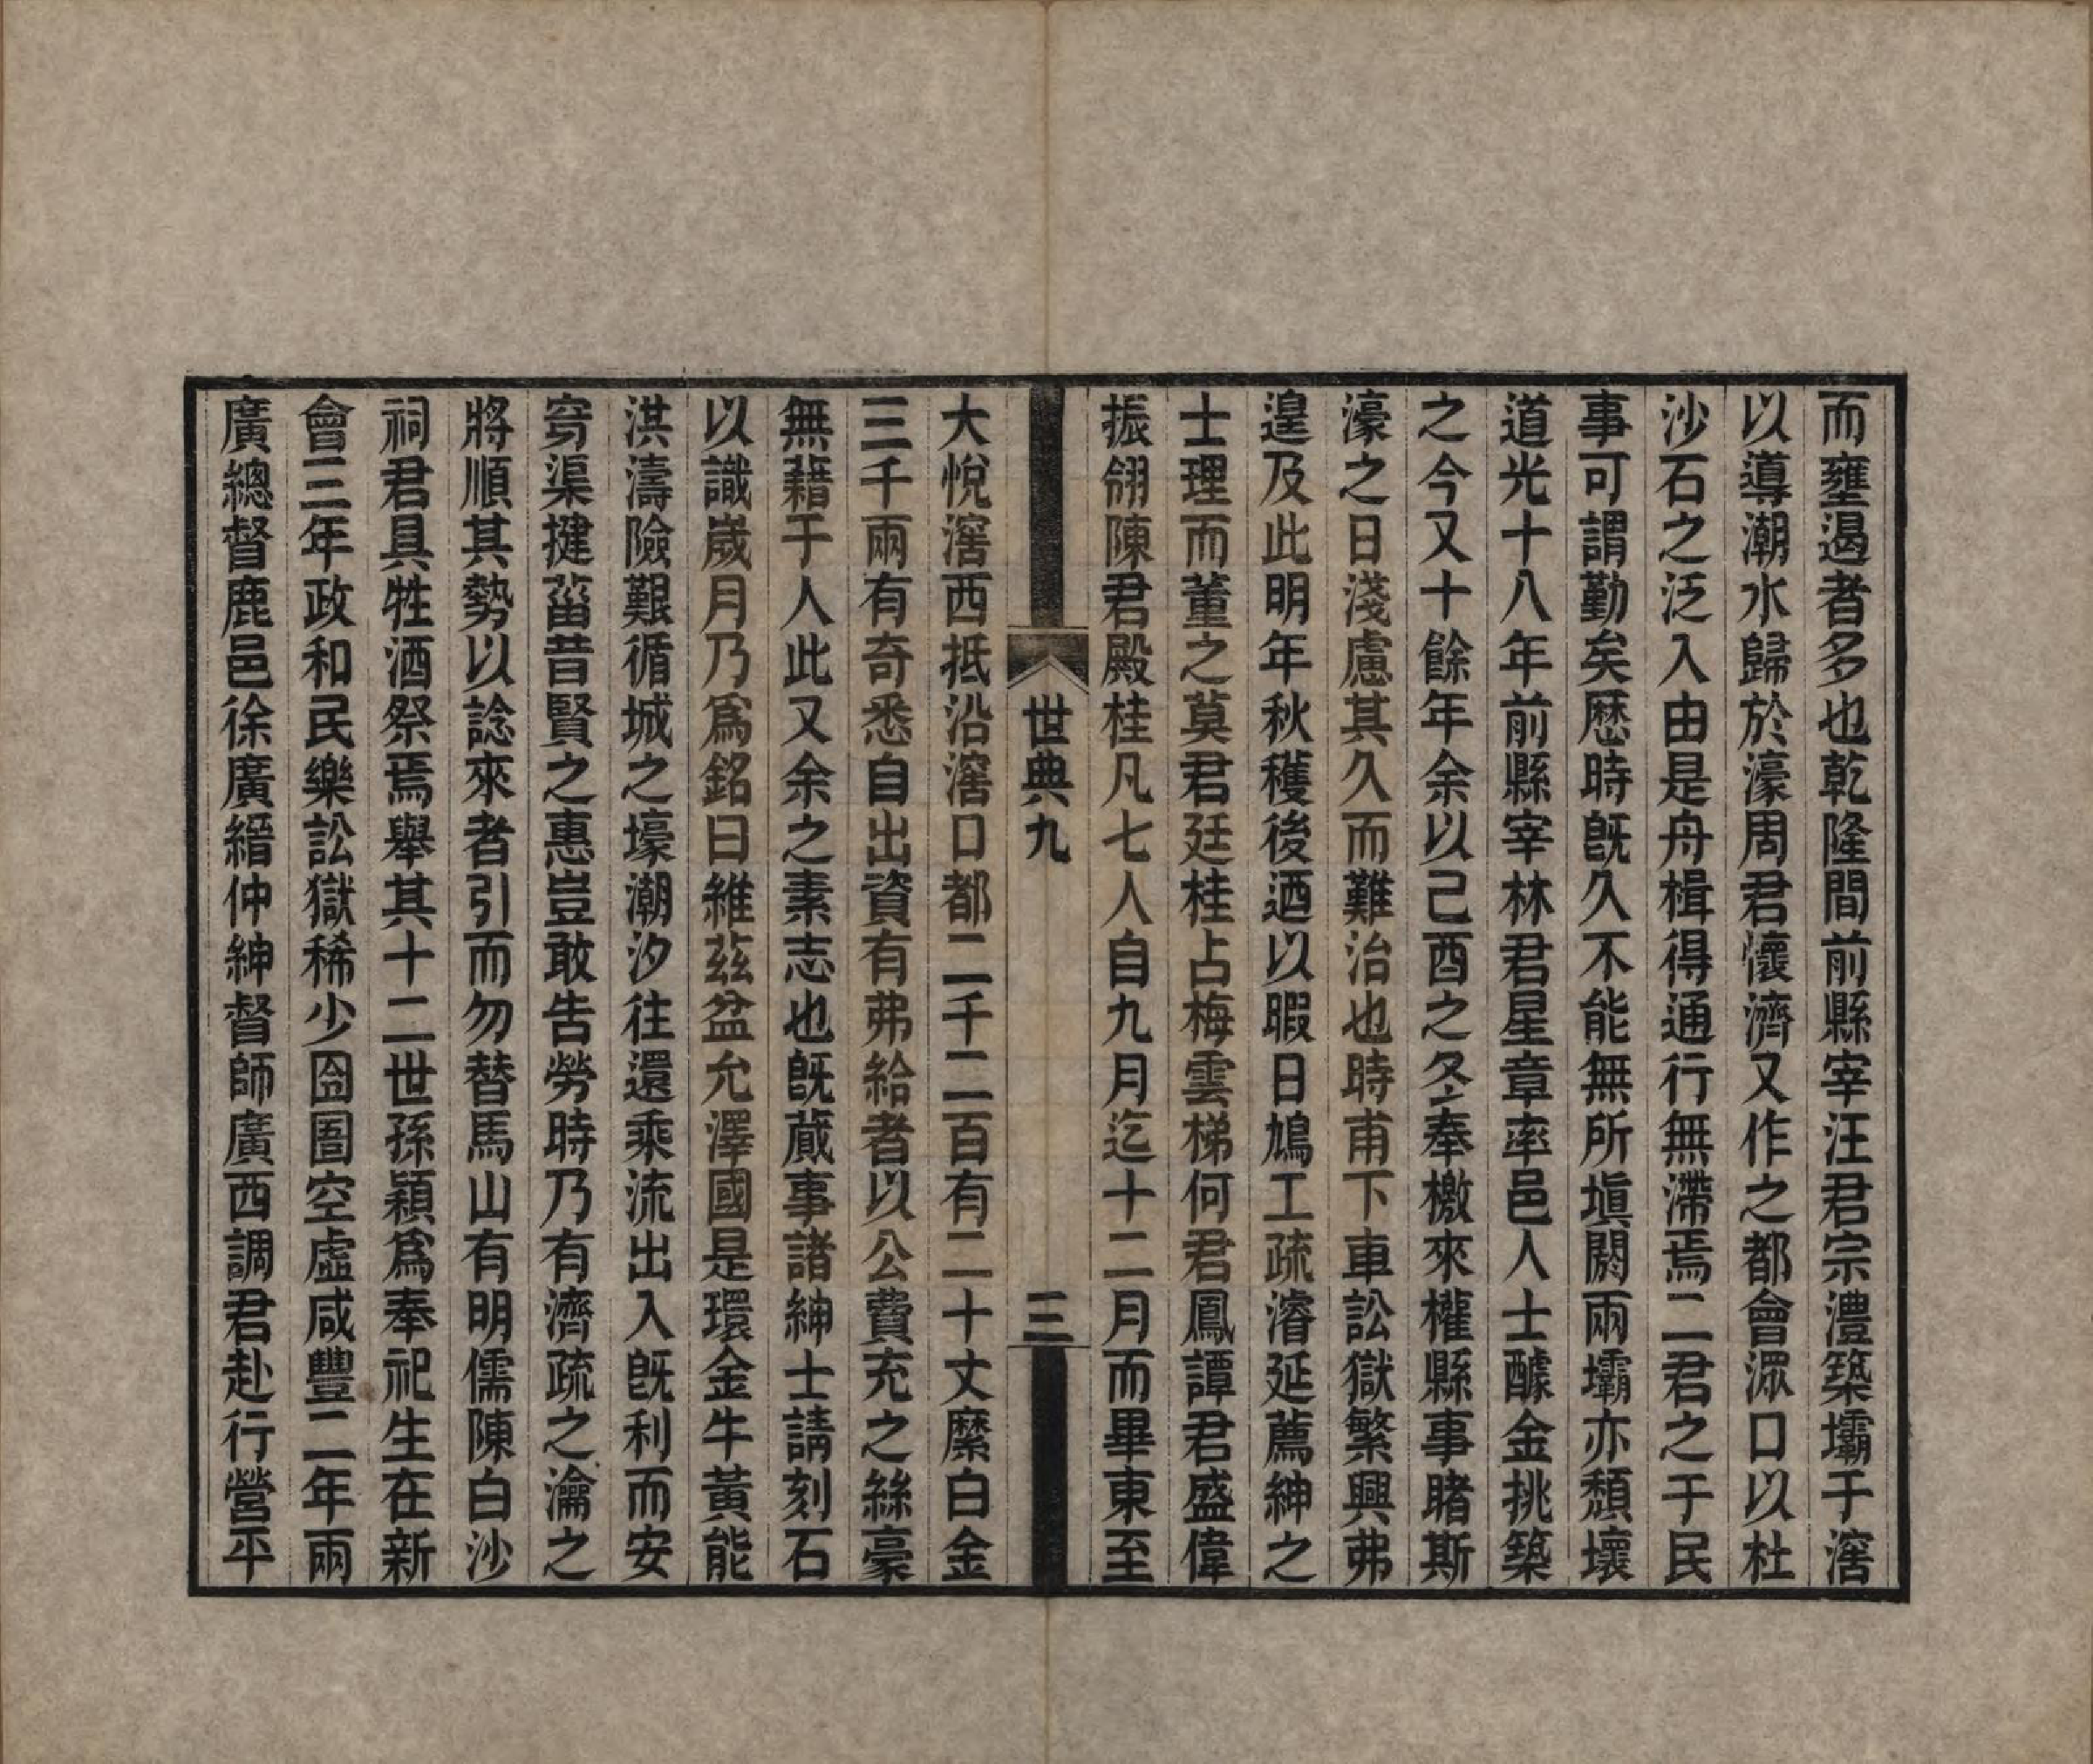 而壅遏者多也乾隆間前縣宰汪君宗澧築壩于滘
以導潮水歸於濠周君懷濟又作之都會滘口以杜
沙石之泛入由是舟楫得通行無滯焉二君之于民
事可謂勤矣歷時旣久不能無所塡閼兩壩亦頽壞
道光十八年前縣宰林君星章率邑人士醵金挑築
之今又十餘年余以己酉之冬奉檄來權縣事睹斯
濠之日淺慮其久而難治也時甫下車訟獄繁興弗
遑及此明年秋穫後迺以暇日鳩工疏濬延薦紳之
士理而董之莫君廷桂占梅雲梯何君鳳譚君盛偉
振翎陳君殿桂凡七人自九月迄十二月而畢東至
世典九
三
大悅滘西抵沿滘口都二千二百有二十丈縻白金
三千兩有奇悉自出資有弗給者以公費充之絲豪
無藉于人此又余之素志也旣蕆事諸紳士請刻石
以識歲月乃爲銘曰維茲盆允澤國是環金牛黃能
洪濤險艱循城之壕潮汐往還乘流出入旣利而安
穿渠揵菑昔賢之惠豈敢告勞時乃有濟疏之瀹之
將順其勢以諗來者引而勿替馬山有明儒陳白沙
祠君具牲酒祭焉舉其十二世孫潁爲奉祀生在新
會三年政和民樂訟獄稀少囹圄空虛咸豐二年兩
廣總督鹿邑徐廣縉仲紳督師廣西調君赴行營平